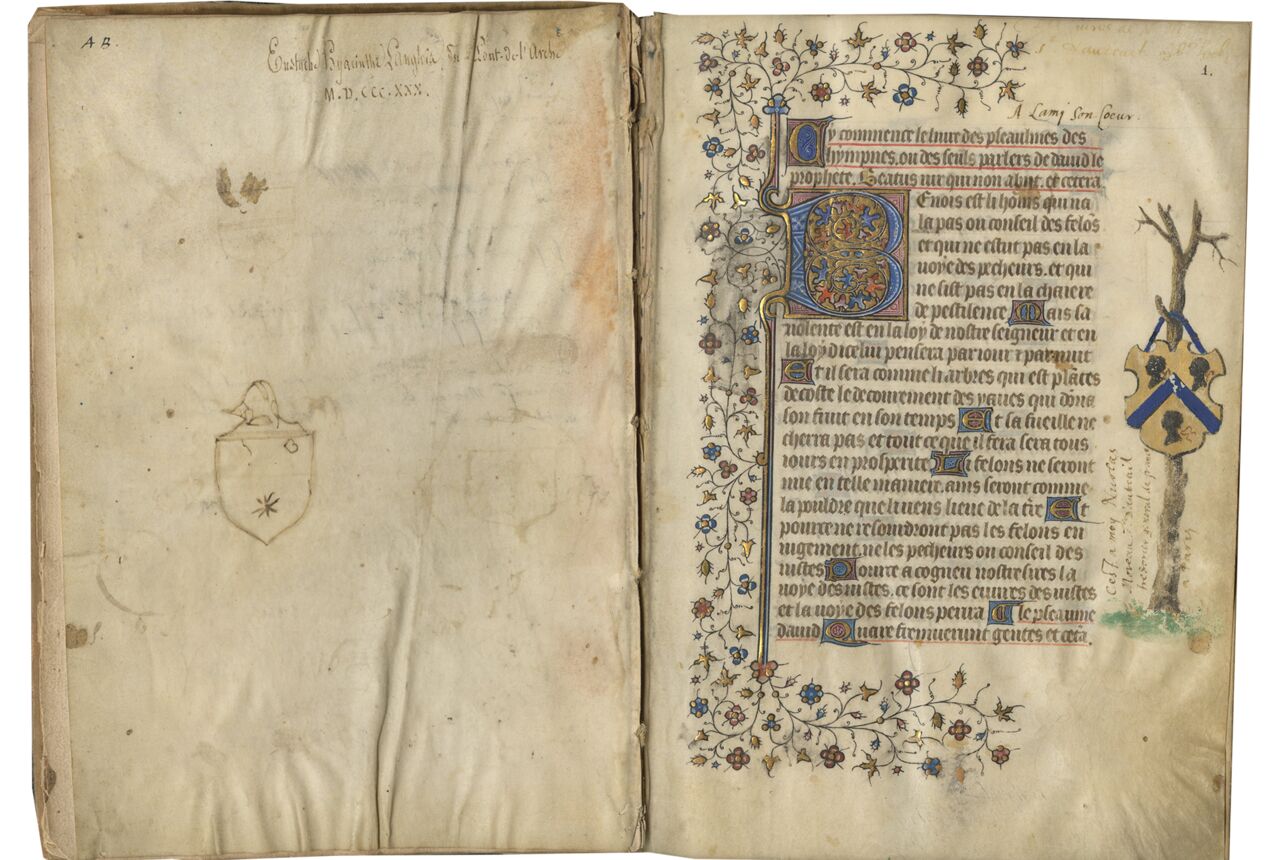 AB.
Eustache Hyacinthe Langlois, du Pont-de-l'Arche
M.D.CCC.XXX.
1.
A Lami Son Coeur.
Cy commence le liure des pseaulmes des
hympnes, ou des seuls parlers de dauid le
prophete. Beatus uir qui non abijt. et cetera.
Benois est li homs qui na
la pas ou conseil des felōs
et qui ne estut pas en la
uoye des pecheurs. et qui
ne sist pas en la chaiere
de pestilence. Mais sa
uolente est en la loy de nostre seigneur et en
la loy dicelui pensera par iour ⁊ par nuit
Et il sera comme li arbres qui est plātes
decoste le decourement des yaues qui dōna
son fruit en son temps Et sa fueille ne
cherra pas et tout ce que il fera sera tous
iours en prosperite Li felons ne seront
mie en telle maniere. ains seront comme
la pouldre que li uens lieue de la t̄re Et
pource ne resourdront pas les felons en
iugement. ne les pecheurs ou conseil des
iustes Pource a cogneu nostre sires la
uoye des iustes. ce sont les euures des iustes
et la uoye des felons perira Cy le pseaume
dauid Quare fremuerunt gentes et cet̄a.
C'est a moy Nicolas
Moreau Sr d'Auteuil
a Paris